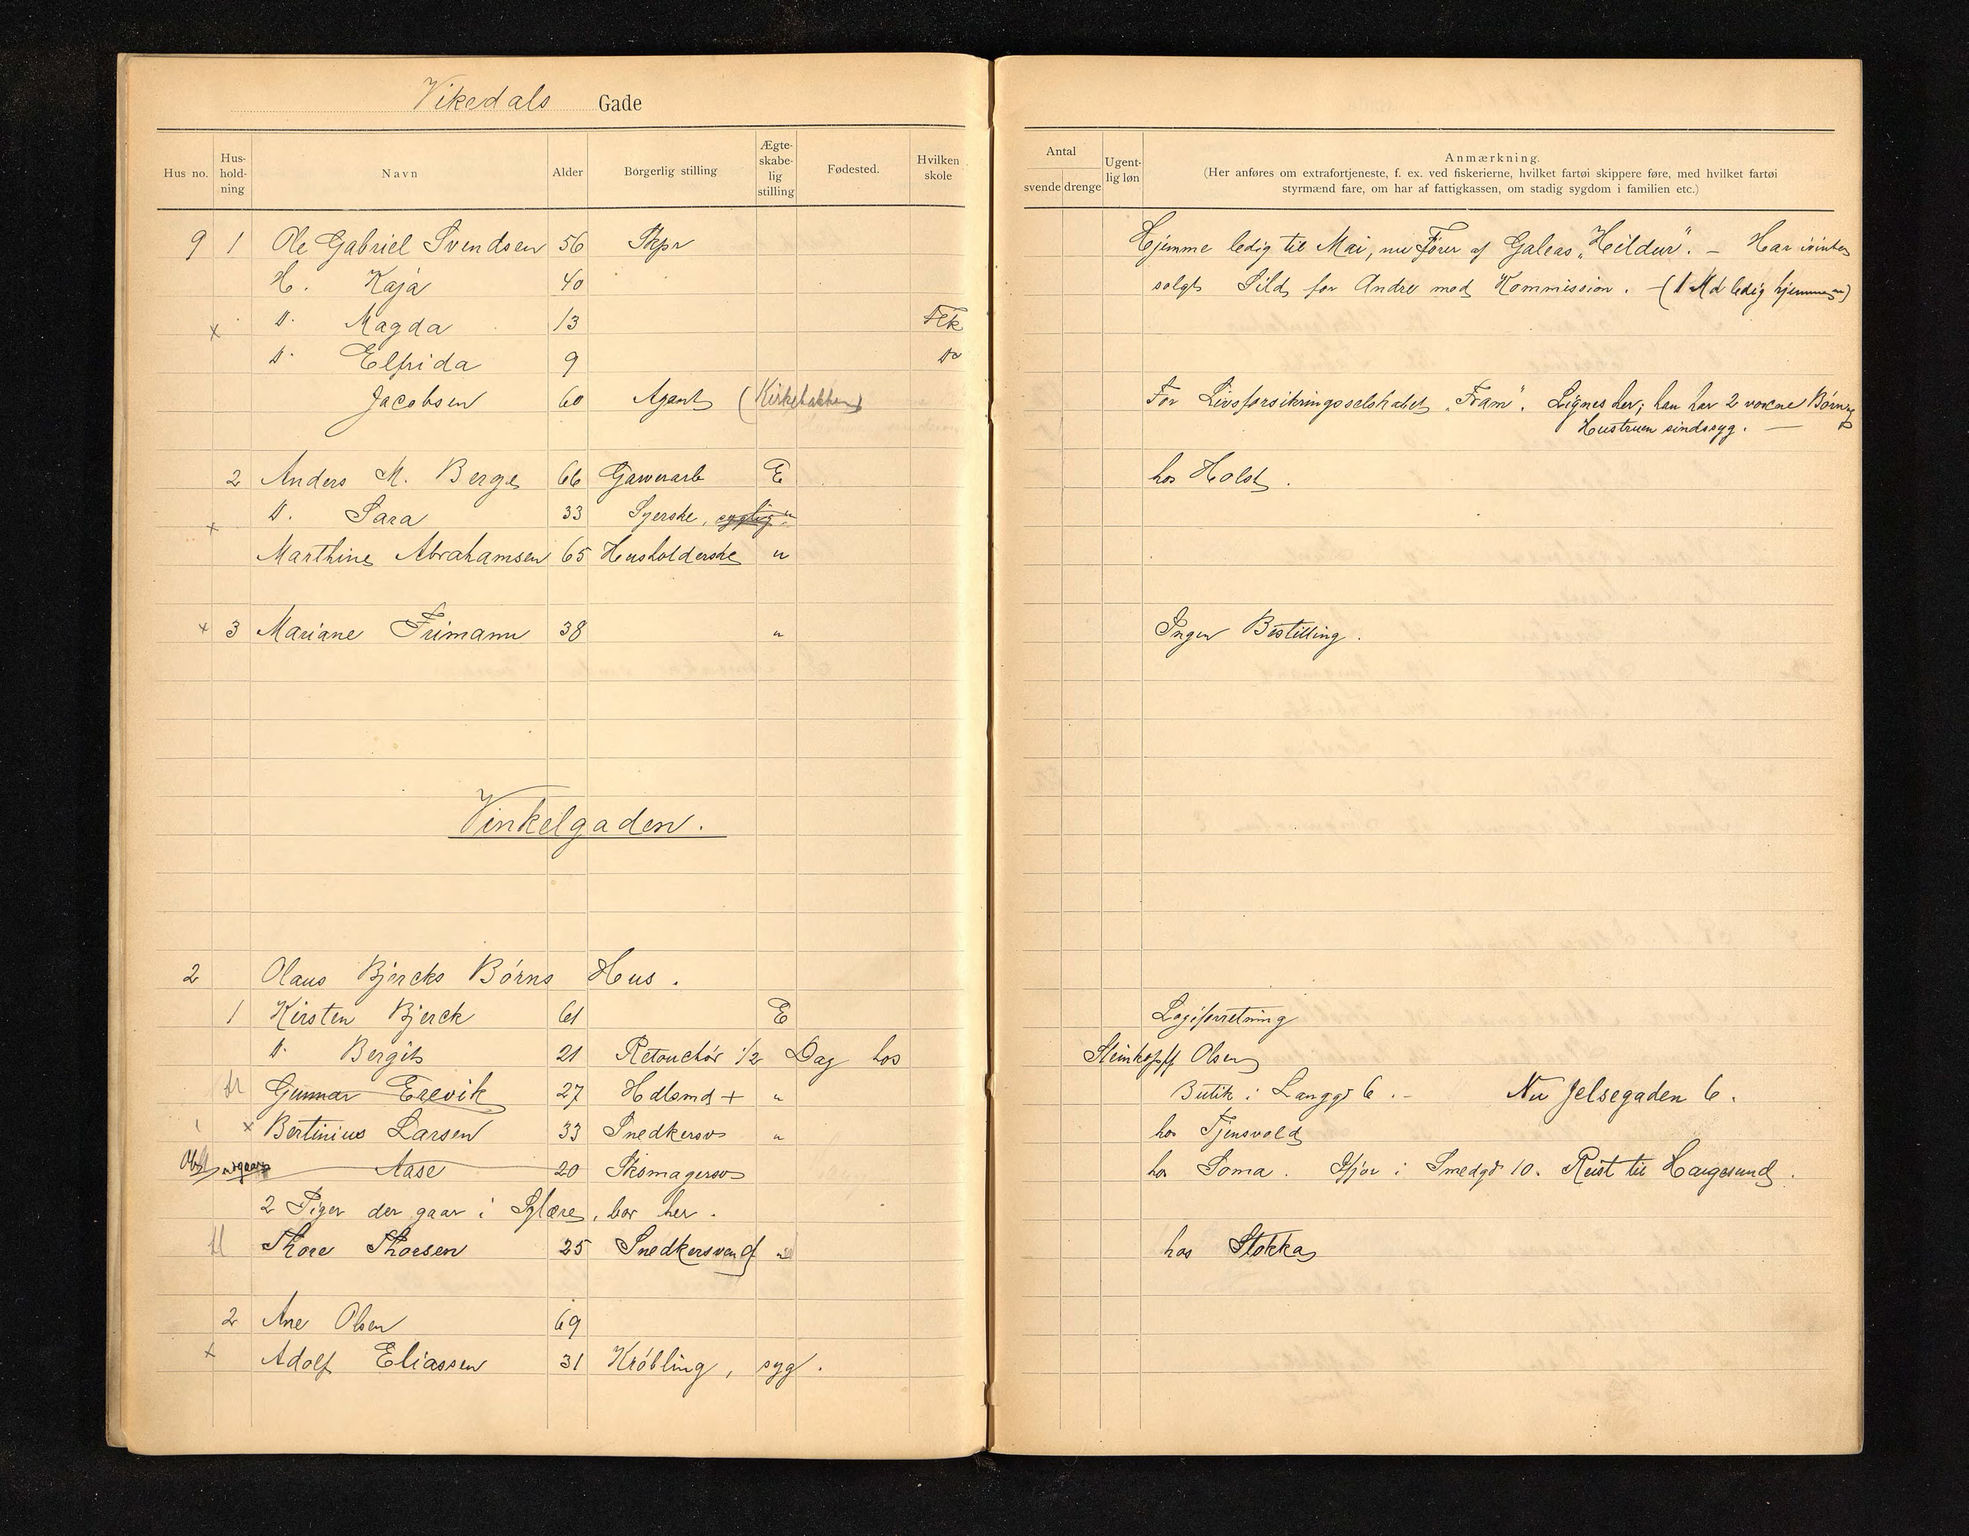 Vikedals Gade
Hus no. Hus-hold-ning Navn Alder Borgerlig stilling Ægte-skabe-lig stilling Fødested. Hvilken skole
Antal svende drenge Ugent-lig løn Anmærkning.
(Her anføres om extrafortjeneste, f. ex. ved fiskerierne, hvilket fartøi skippere føre, med hvilket fartøi
styrmænd fare, om har af fattigkassen, om stadig sygdom i familien etc.)
9 1 Ole Gabriel Svendsen 56 Skpr Hjemme ledig til Mai, nu Fører af Galeas „Hildur". — Har ivinter
H. Kaja 40 solgt Sild for Andre mod Kommission. — (1 Md ledig hjemme)
x D. Magda 13 Flk
D. Elfrida 9 Do
Jacobsen 60 Agent (Kirkebakken) For Livsforsikringsselskabet „Fram". Lignes her; han har 2 voxne Børn og
Hustruen sindssyg. —
2 Anders M. Berge 66 Gaverarb E hos Holst.
x D. Sara 33 Syerske, syglig "
Marthine Abrahamsen 65 Husholderske "
x 3 Mariane Frimann 38 " Ingen Bestilling.
Vinkelgaden.
2 Olaus Bjercks Børns Hus.
1 Kirsten Bjerck 61 E Logiforretning
D. Bergit 21 Retouchör 1/2 Dag hos Steinkopff Olsen
fl Gunnar Erevik 27 Hdlsmd + " Butik i Langgd 6. — Nu Jelsegaden 6.
x Bertinius Larsen 33 Snedkersv " hos Tjensvold
Aase 20 Skomagersv hos Soma. Gjør i Smedgd 10. Reist til Haugesund.
2 Piger der gaar i Sylære, bor her.
fl Thore Thorsen 25 Snedkersvend " hos Stokka
2 Ane Olsen 69
x Adolf Eliassen 31 Krøbling, syg.